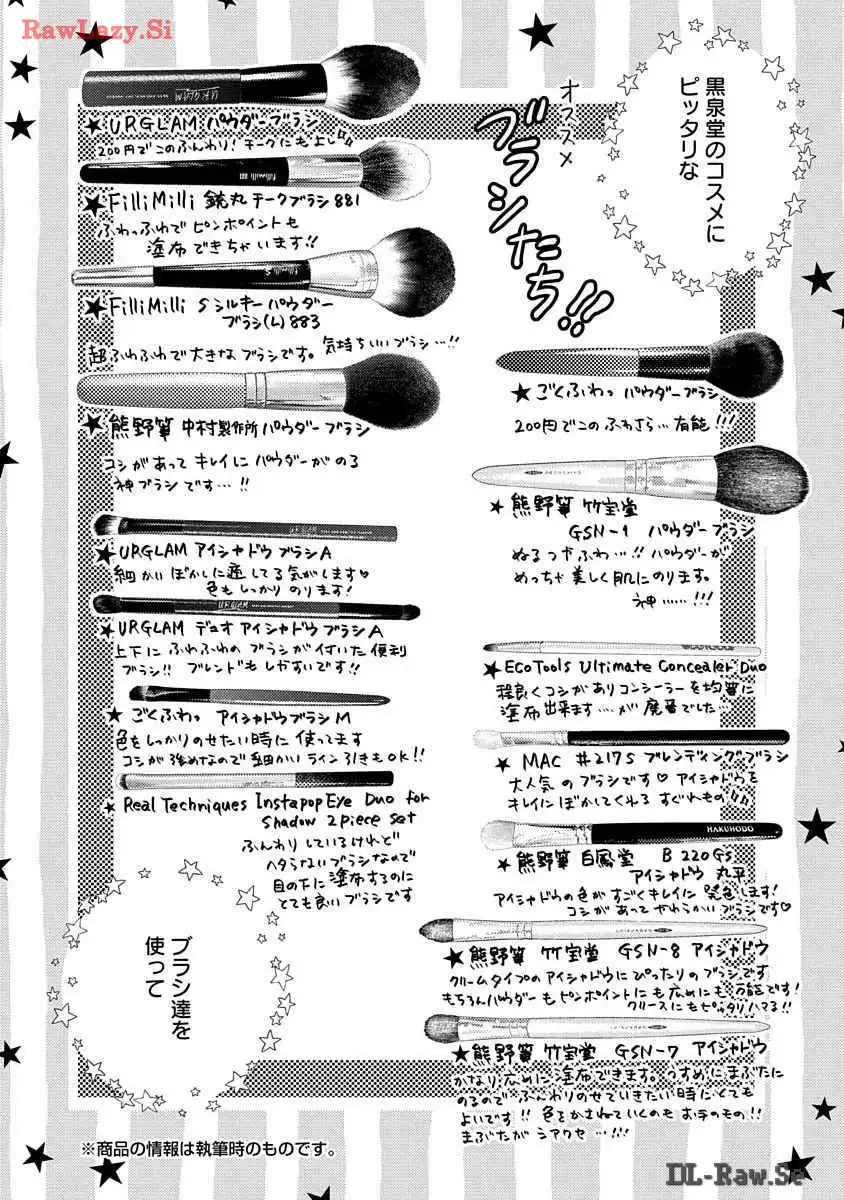 RawLazy.Si
黒泉堂のコスメに
ピッタリな
オススメ
ブラシたち!!
★URGLAM パウダーブラシ
200円でこのふんわり!チークにも良し!!
★FilliMilli 銃丸チークブラシ881
ふわっふわでピンポイントも
塗布できちゃいます!!
★FilliMilli Sシルキーパウダー
ブラシ(L)883
超ふわふわで大きなブラシです。気持ちいいブラシ…!!
★熊野筆 中村製作所パウダーブラシ
コシがあってキレイにパウダーがのる
神ブラシです…!!
★URGLAM アイシャドウブラシA
細かいぼかしに適してる気がします♡
色もしっかりのります!
★URGLAM デュオアイシャドウブラシA
上下にふわふわのブラシが付いた便利
ブラシ!!ブレンドもしやすいです!!
★ごくふわっ アイシャドウブラシM
色をしっかりのせたい時に使ってます
コシが強めなので細かいライン引きもOK!!
★Real Techniques Instapop Eye Duo for
Shadow 2piece set
ふんわりしているけれど
ヘタらないブラシなので
目の下に塗布するのに
とても良いブラシです
★ごくふわっ パウダーブラシ
200円でこのふわさら…有能!!!
★熊野筆 竹宝堂
GSN-1 パウダーブラシ
ぬるつやふわ…!!パウダーが
めっちゃ美しく肌にのります。
神……!!!
★EcoTools Ultimate Concealer Duo
程良くコシがありコンシーラーを均等に
塗布出来ます…が廃番でした…
★MAC #217S ブレンディングブラシ
大人気のブラシです♡アイシャドウを
キレイにぼかしてくれるすぐれもの!!
HAKUHODO
★熊野筆 白鳳堂 B220GS
アイシャドウ 丸平
アイシャドウの色がすごくキレイに発色します!
コシがあってやわらかいブラシです♡
★熊野筆 竹宝堂 GSN-8 アイシャドウ
クリームタイプのアイシャドウにぴったりのブラシです
もちろんパウダーもピンポイントにも広めにも万能です!
クリースにもピッタリハマる!!
★熊野筆 竹宝堂 GSN-7 アイシャドウ
かなり広めに塗布できます。うすめにまぶたに
のるのでふんわりのせていきたい時にとても
よいです!!色をかさねていくのもお手のもの!!
まぶたがシアワセ…!!!
ブラシ達を
使って
※商品の情報は執筆時のものです。
DL-Raw.Se